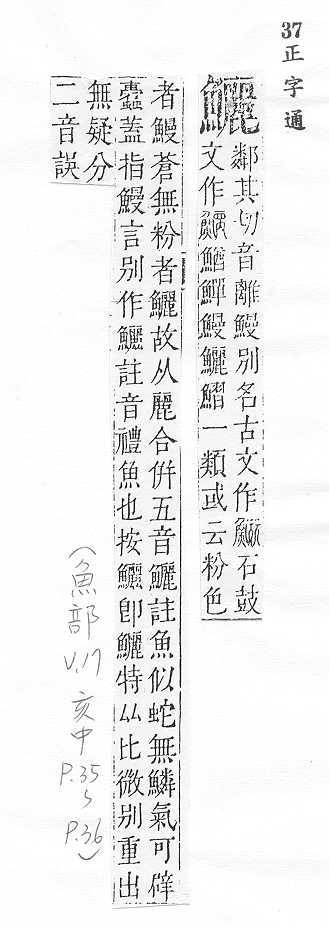 37正字通
鱺鄰其切音離鰻別名古文作䲞石鼓
文作鰋鰌鱓鰻鱺鰼一類或云粉色
者鰻蒼無粉者鱺故从麗合併五音鱺註魚似蛇無鱗氣可辟
蠹蓋指鰻言別作鱺註音禮魚也按鱺卽鱺特厶比微別重出
無疑分
二音誤
(魚部
V.17
亥中
P.35
P.36)